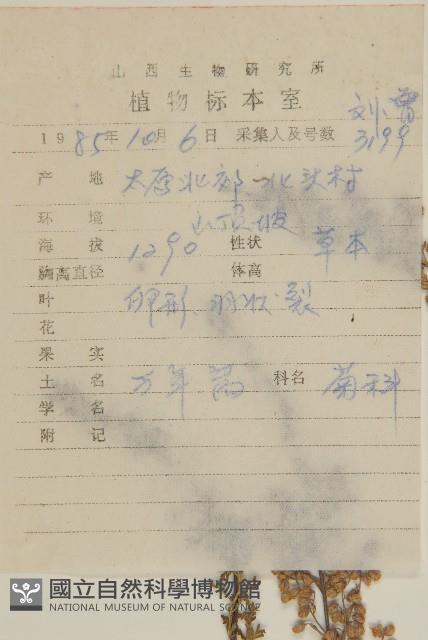 山西生物研究所
植物标本室
刘 曾
1985年10月6日 采集人及号数 3199
产地 太原北郊 北头村
环境 山顶坡
海拔 1290 性状 草本
胸高直径 体高
叶 卵形 羽状裂
花
果实
土名 万年蒿 科名 菊科
学名
附记
國立自然科學博物館
NATIONAL MUSEUM OF NATURAL SCIENCE